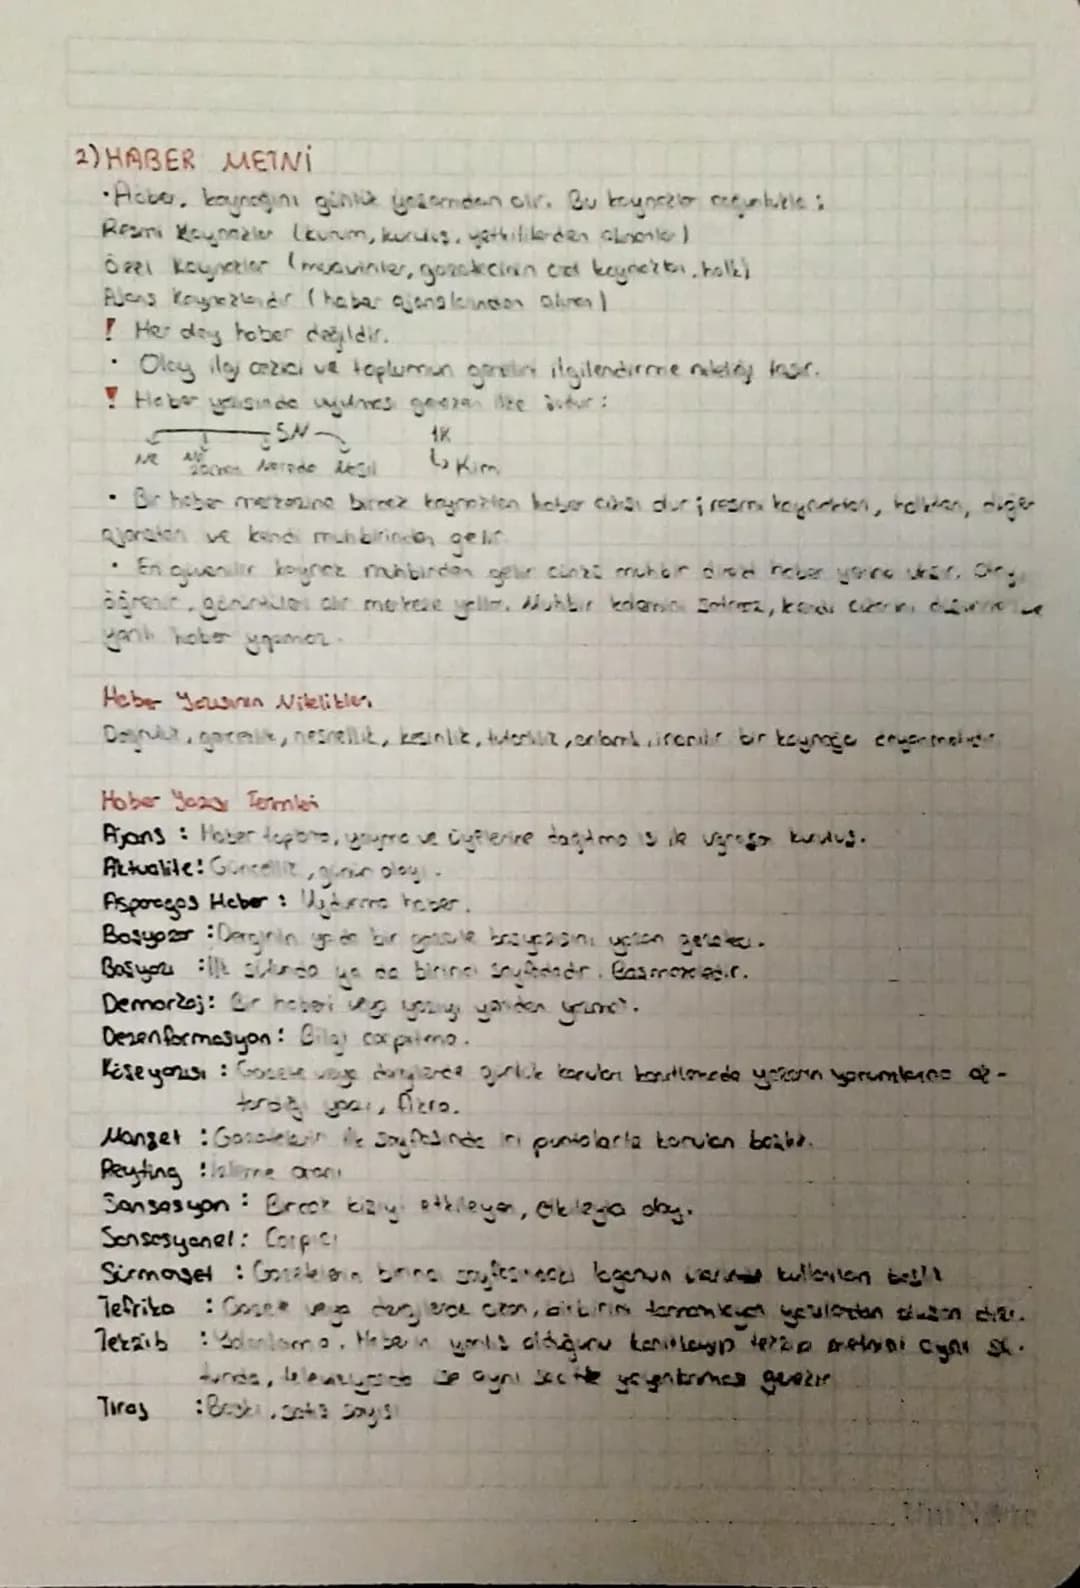 2) HABER METNİ
• Haber, kaynağını günlük yaşamdan alır. Bu kaynaklar çoğunlukla :
Resmi Kaynaklar (kurum, kuruluş, yetkililerden alınanlar)
Özel Kaynaklar (muavinler, gazetecinin özel kaynakları, halk)
Ajans Kaynaklarıdır (haber ajanslarından alınan)
! Her olay haber değildir.
• Olay ilgi çekici ve toplumun genelini ilgilendirme niteliği taşır.
! Haber yazısında uyulması gereken ilke şudur :
5N 1K
Ne Ne zaman Nerede Nasıl ↳ Kim
• Bir haber merkezine birçok kaynaktan haber akışı olur ; resmi kaynaktan, halktan, diğer
ajanstan ve kendi muhbirinden gelir
• En güvenilir kaynak muhbirden gelir çünkü muhbir direkt haber yerine
öğrenir, görüntüleri alır merkeze yollar. Muhbir kalemini satmaz, kendi çıkarını
yanlı haber yapamaz.
Haber Yazısının Nitelikleri
Doğruluk, güncellik, nesnellik, kesinlik, tutarlılık, inanılır bir kaynağa dayanmalıdır
Haber Yazısı Terimleri
Ajans : Haber toplama, yayma ve üyelerine dağıtma işi ile uğraşan kuruluş.
Aktualite : Güncellik, günün olayı.
Asparagas Haber : Uydurma haber.
Başyazar : Derginin ya da bir gazete başyazısını yazan gazeteci.
Başyazı : İlk sütunda ya da birinci sayfadadır. Başmakaledir.
Demarkaj : Bir haberi veya yazıyı yeniden yazmak.
Dezenformasyon : Bilgi çarpıtma.
Köşe yazısı : Gazete veya dergilerde günlük konuları kanıtlamada yazarın yorumlarına
yazı, fıkra.
Manşet : Gazetelerin ilk sayfasında iri puntolarla konulan başlık.
Reyting : İzlenme oranı
Sansasyon : Birçok kişiyi etkileyen, etkileyici olay.
Sansasyonel : Çarpıcı
Sürmanşet : Gazetelerin birinci sayfasındaki logonun üzerinde kullanılan başlık
Tefrika : Gazete veya dergilerde çıkan, birbirini tamamlayan yazılardan oluşan dizi.
Tekzib : Yalanlama. Haberin yanlış olduğunu kanıtlayıp tekzip metnini aynı sü-
tunda, televizyonda ise aynı saatte yayınlanması gerekir
Tiraj : Baskı, satış sayısı